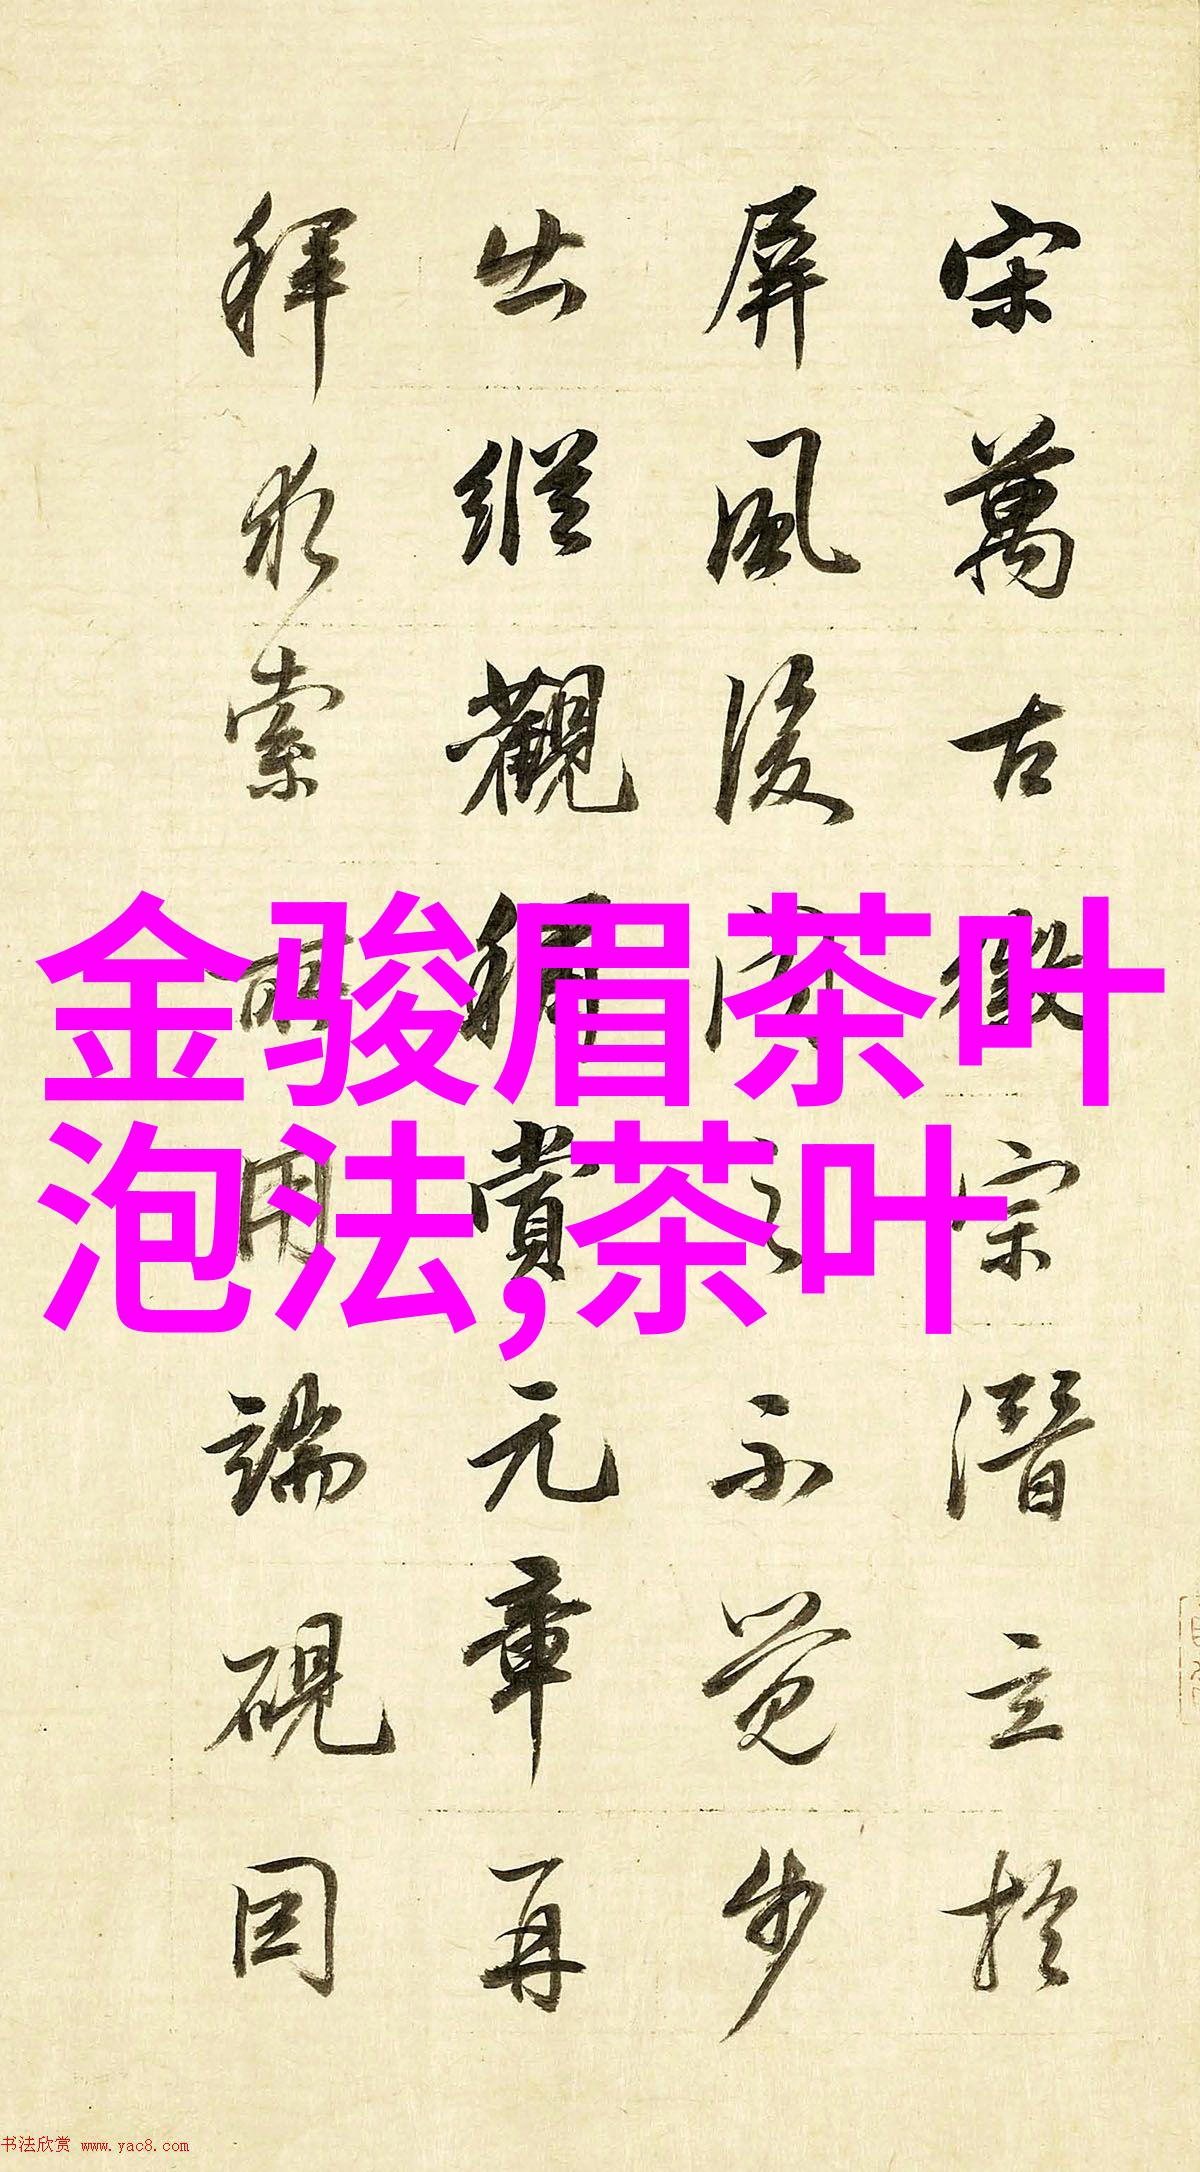 金骏眉茶叶
泡法,茶叶
宋萬古徽宗潛立於
屏風後聞之不覺步
出縱觀稱賞元章再
拜求索所用端硯因
书法欣赏 www.yac8.com